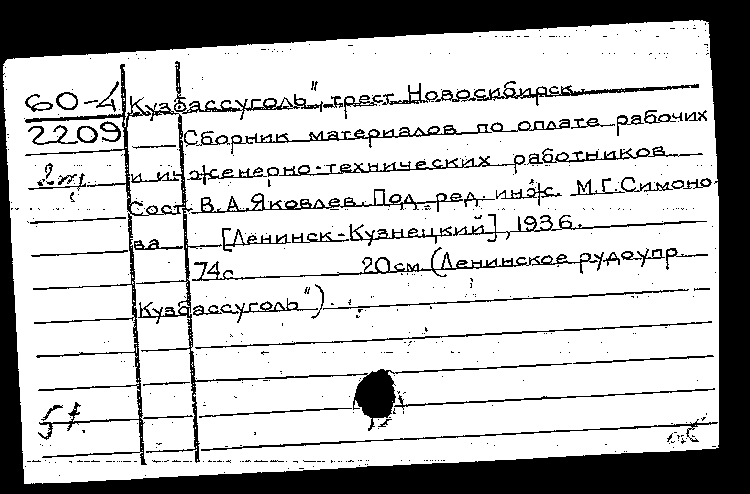 60-4 Кузбассуголь", трест Новосибирск.
2209 Сборник материалов по оплате рабочих
и инженерно-технических работников
Сост. В.А.Яковлев. Под ред. инж. М.Г.Симоно-
ва [Ленинск-Кузнецкий], 1936.
74с 20см (Ленинское рудоупр.
Кузбассуголь").